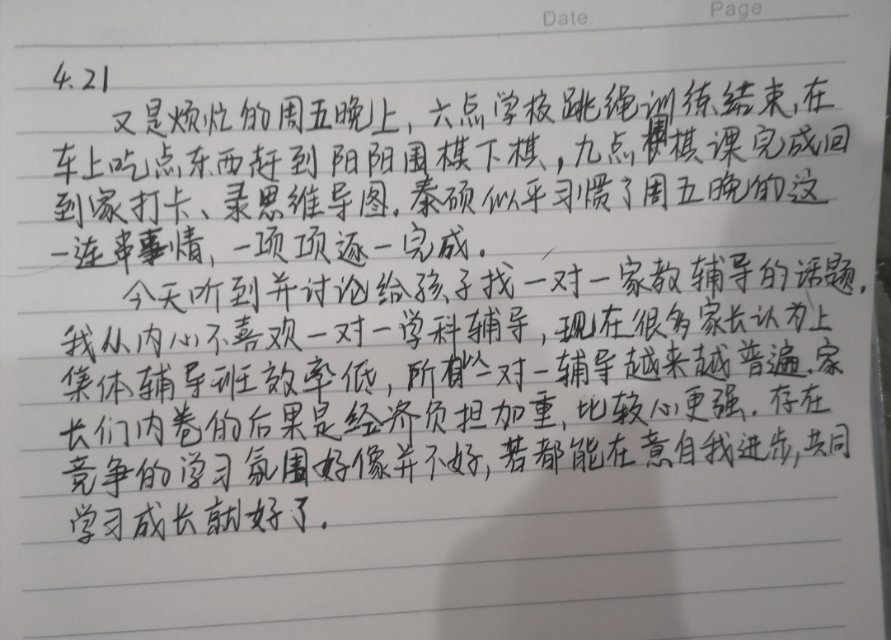 Date.
Page.
4.21
又是烦忙的周五晚上，六点学校跳绳训练结束，在
车上吃点东西赶到阳阳围棋下棋，九点棋课完成回
到家打卡、录思维导图。泰硕似乎习惯了周五晚的这
一连串事情，一项项逐一完成。
今天听到并讨论给孩子找一对一家教辅导的话题，
我从内心不喜欢一对一学科辅导，现在很多家长认为上
集体辅导班效率低，所以一对一辅导越来越普遍。家
长们内卷的后果是经济负担加重，比较心更强。存在
竞争的学习氛围好像并不好，若都能在意自我进步，共同
学习成长就好了。